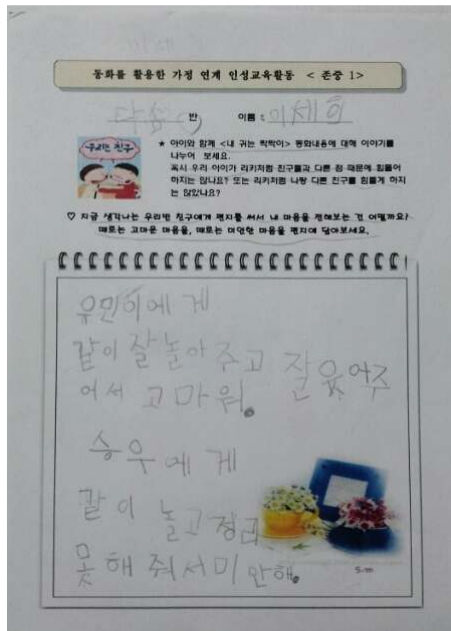 동화를 활용한 가정 연계 인성교육활동 < 존중 1>
반 이름 : 이채희
우리반 친구
★ 아이와 함께 <내 귀는 짝짝이> 동화내용에 대해 이야기를
나누어 보세요.
혹시 우리 아이가 리키처럼 친구들과 다른 점 때문에 힘들어
하지는 않나요? 또는 리키처럼 나랑 다른 친구를 힘들게 하지
는 않았나요?
♡ 지금 생각나는 우리반 친구에게 편지를 써서 내 마음을 전해보는 건 어떨까요?
때로는 고마운 마음을, 때로는 미안한 마음을 편지에 담아보세요.
유민이에게
같이 잘 놀아주고 잘 웃어주
어서 고마워.
승우에게
같이 놀고 정리
못해줘서 미안해.